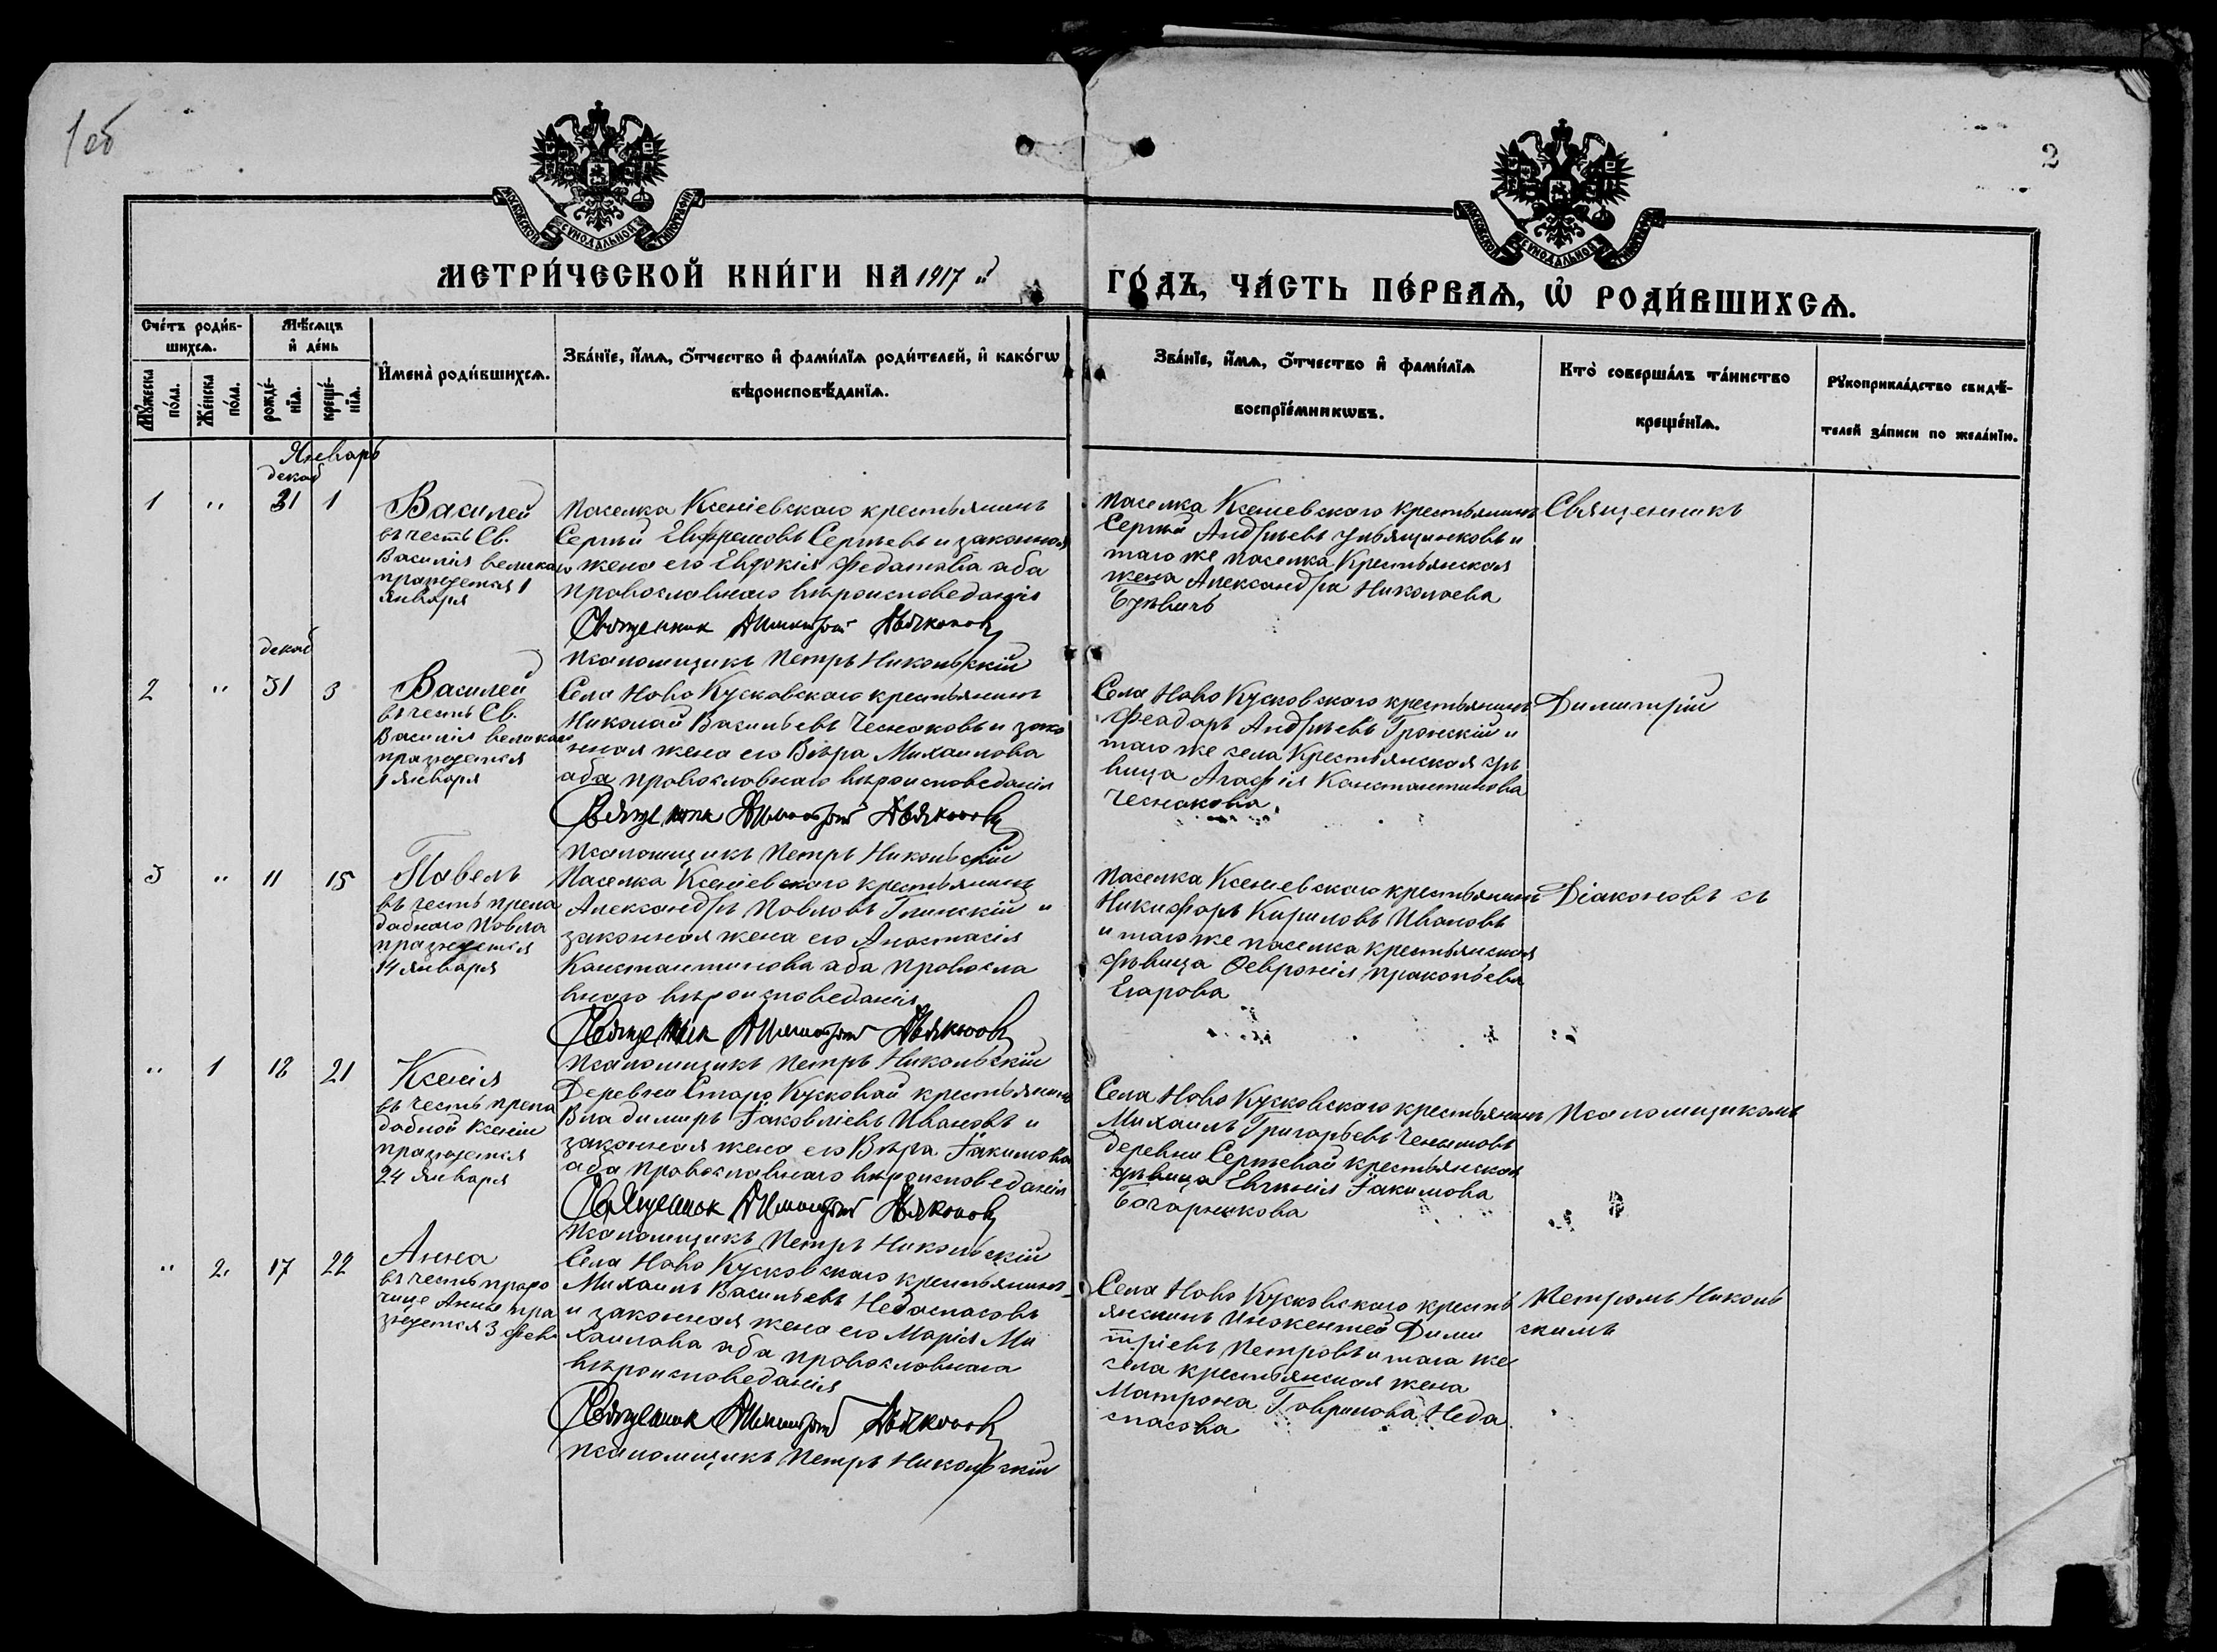 1 об
2
МОСКОВСКОЙ СѴНОДАЛЬНОЙ ТИПОГРАФІИ
МОСКОВСКОЙ СѴНОДАЛЬНОЙ ТИПОГРАФІИ
МЕТРИ́ЧЕСКОЙ КНИ́ГИ НА 1917 й
ГО́ДЪ, ЧА́СТЬ ПЕ́РВАѦ, Ѡ РОДИ́ВШИХСѦ.
Сче́тъ роди́в-
шихсѧ.
Мѣ́сѧцъ
и де́нь
Мꙋ́жеска
по́ла.
Же́нска
по́ла.
рожде́-
нїѧ.
креще́-
нїѧ.
Имена̀ роди́вшихсѧ.
Зва́нїе, и́мѧ, о́тчество и фами́лїѧ роди́телей, и како́гѡ
вѣроисповѣ́данїѧ.
Зва́нїе, и́мѧ, о́тчество и фами́лїѧ
воспрїе́мникѡвъ.
Кто̀ соверша́лъ та́инство
креще́нїѧ.
Рꙋкоприкла́дство свидѣ́-
телей за́писи по жела́нїю.
Январь
декаб
1 " 31 1
Василей
въ честь Св.
Василія великаго
празнуется 1
Января
Паселка Ксеніевскаго крестьянинъ
Сергѣй Евфремовъ Сергѣевъ и законная
жена его Евдокія Федатова аба
провославнаго вѣроисповеданія
Священник Димитрій Дьяконов
Псаломщикъ Петръ Никольскій
Паселка Ксеніевскаго крестьянинъ
Сергѣй Андрѣевъ Ульящинковъ и
таго же паселка Крестьянская
жена Александра Николаева
Священникъ
декаб
2 " 31 3
Василей
въ честь Св.
Василія великаго
празнуется
1 Января
Села Ново Кусковскаго крестьянинъ
Николай Васильевъ Чеснаковъ и зако
нная жена его Вѣра Михаилова
аба провославнаго вѣроисповеданія
Священник Димитрій Дьяконов
Псаломщикъ Петръ Никольскій
Села Ново Кусковскаго крестьянинъ
Феадаръ Андрѣевъ Гронскій и
таго же села Крестьянская дѣ
вица Агафія Канстантинова
Чеснакова.
Димитрій
3 " 11 15
Павелъ
въ честь препа
добнаго Повла
празнуется
14 Января
Паселка Ксеніевскаго крестьянинъ
Александръ Повловъ Глинскій и
законная жена его Анастасія
Канстантинова аба провосла
внаго вѣроисповеданія
Священник Димитрій Дьяконов
Псаломщикъ Петръ Никольскій
Паселка Ксеніевскаго крестьянинъ
Никифаръ Кириловъ Ивановъ
и таго же паселка крестьянская
дѣвица Февронія Пракопьева
Егарова
Діаконовъ съ
" 1 18 21
Ксенія
въ честь препа
добной Ксеніи
празнуется
24 Января
Деревни Старо Кусковай крестьянинъ
Владимиръ Іаковліевъ Ивановъ и
законная жена его Вѣра Іакимова
аба провославнаго вѣроисповеданія
Священник Димитрій Дьяконов
Псаломщикъ Петръ Никольскій
Села Ново Кусковскаго крестьянинъ
Михаилъ Григарьевъ
деревни Сергѣевай крестьянская
дѣвица Евгѣнія Іакимова
Бочарникова
Псаломщикомъ
" 2. 17 22
Анна
въ честь проро
чице Анны пра
знуется 3 фев
Села Ново Кусковскаго крестьянинъ
Михаилъ Васильевъ Недаспасовъ
и законная жена его Марія Ми
хаилова аба провославнага
вѣроисповеданія
Священник Димитрій Дьяконов
Псаломщикъ Петръ Никольскій
Села Ново Кусковскаго кресть
янинъ Инокентей Дими
тріевъ Петровъ и тага же
села крестьянская жена
Матрона Говрилова Неда
спасова
Петромъ Николь
скимъ